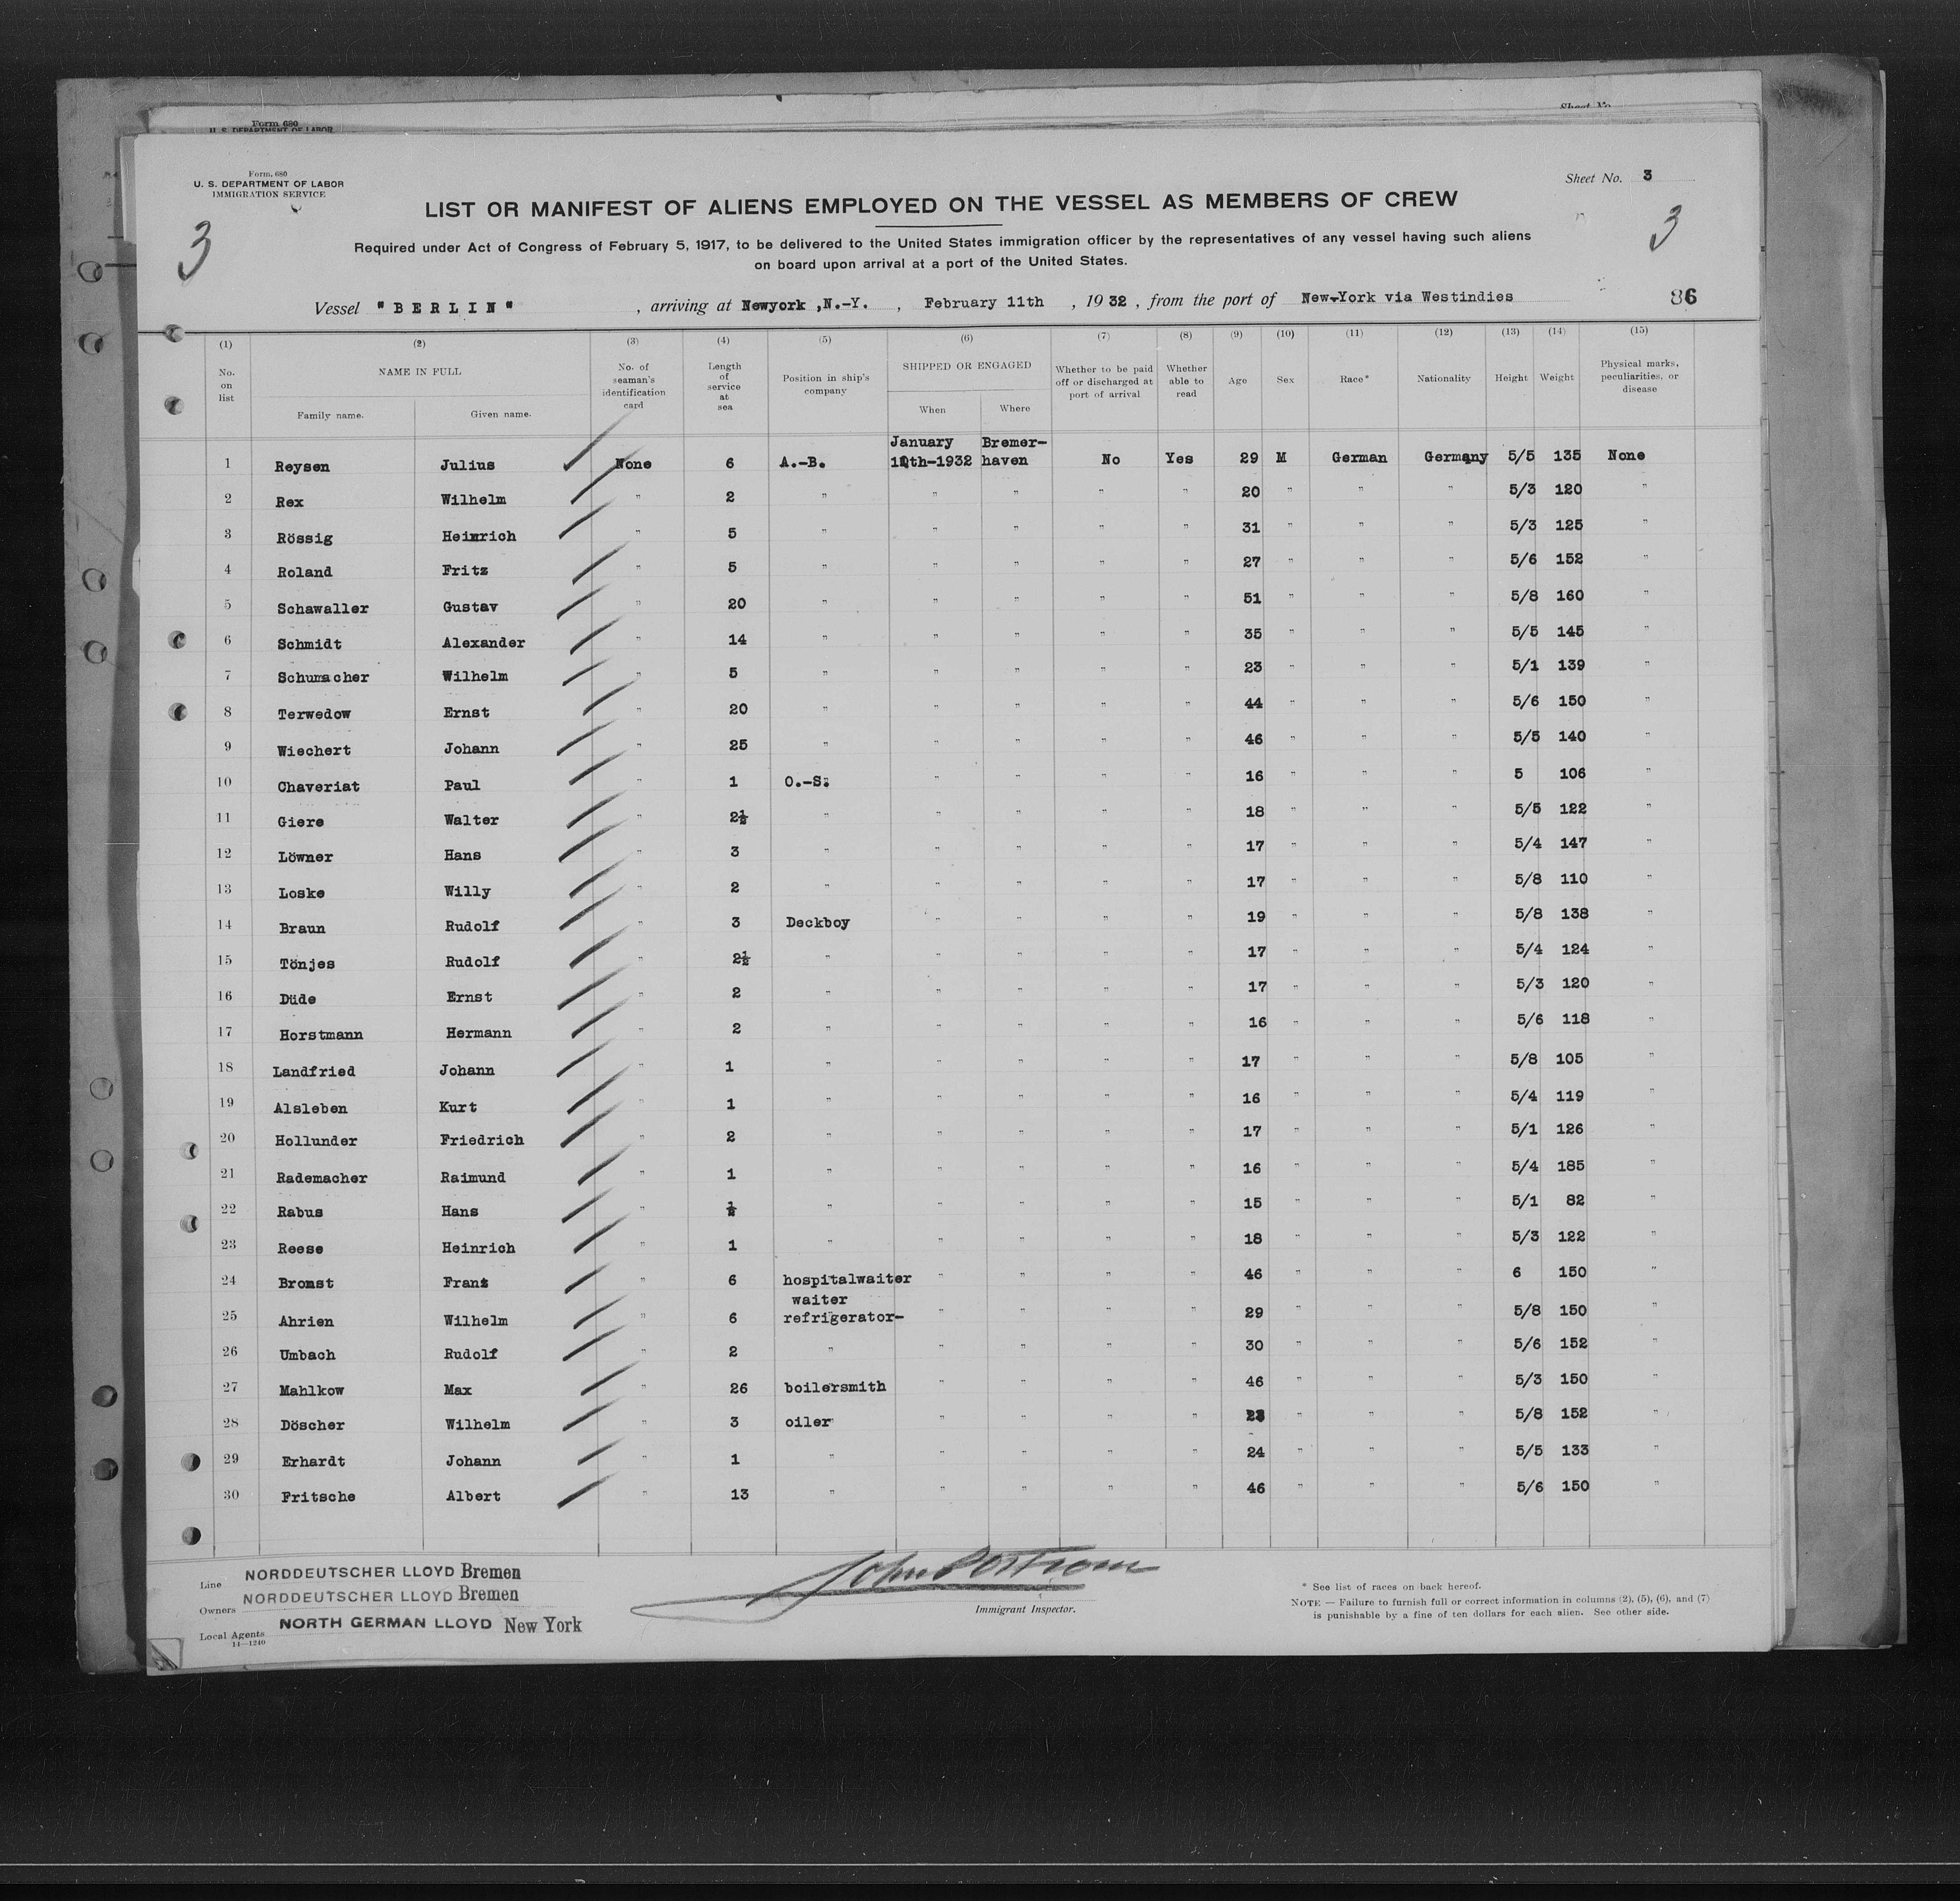 Sheet No.
Form 680
U. S. DEPARTMENT OF LABOR
Form. 680
U. S. DEPARTMENT OF LABOR
IMMIGRATION SERVICE
Sheet No. 3
3
3
LIST OR MANIFEST OF ALIENS EMPLOYED ON THE VESSEL AS MEMBERS OF CREW
Required under Act of Congress of February 5, 1917, to be delivered to the United States immigration officer by the representatives of any vessel having such aliens
on board upon arrival at a port of the United States.
Vessel "BERLIN" , arriving at Newyork ,N.-Y. , February 11th , 1932 , from the port of New-York via Westindies
86
(1) (2) (3) (4) (5) (6) (7) (8) (9) (10) (11) (12) (13) (14) (15)
No. on list NAME IN FULL Family name. Given name. No. of seaman's identification card Length of service at sea Position in ship's company SHIPPED OR ENGAGED When Where Whether to be paid off or discharged at port of arrival Whether able to read Age Sex Race* Nationality Height Weight Physical marks, peculiarities, or disease
January Bremer-
1 Reysen Julius None 6 A.-B. 12th-1932 haven No Yes 29 M German Germany 5/5 135 None
2 Rex Wilhelm " 2 " " " " " 20 " " " 5/3 120 "
3 Rössig Heinrich " 5 " " " " " 31 " " " 5/3 125 "
4 Roland Fritz " 5 " " " " " 27 " " " 5/6 152 "
5 Schawaller Gustav " 20 " " " " " 51 " " " 5/8 160 "
6 Schmidt Alexander " 14 " " " " " 35 " " " 5/5 145 "
7 Schumacher Wilhelm " 5 " " " " " 23 " " " 5/1 139 "
8 Terwedow Ernst " 20 " " " " " 44 " " " 5/6 150 "
9 Wiechert Johann " 25 " " " " " 46 " " " 5/5 140 "
10 Chaveriat Paul " 1 O.-S. " " " " 16 " " " 5 106 "
11 Giere Walter " 2½ " " " " " 18 " " " 5/5 122 "
12 Löwner Hans " 3 " " " " " 17 " " " 5/4 147 "
13 Loske Willy " 2 " " " " " 17 " " " 5/8 110 "
14 Braun Rudolf " 3 Deckboy " " " " 19 " " " 5/8 138 "
15 Tönjes Rudolf " 2½ " " " " " 17 " " " 5/4 124 "
16 Düde Ernst " 2 " " " " " 17 " " " 5/3 120 "
17 Horstmann Hermann " 2 " " " " " 16 " " " 5/6 118 "
18 Landfried Johann " 1 " " " " " 17 " " " 5/8 105 "
19 Alsleben Kurt " 1 " " " " " 16 " " " 5/4 119 "
20 Hollunder Friedrich " 2 " " " " " 17 " " " 5/1 126 "
21 Rademacher Raimund " 1 " " " " " 16 " " " 5/4 185 "
22 Rabus Hans " ½ " " " " " 15 " " " 5/1 82 "
23 Reese Heinrich " 1 " " " " " 18 " " " 5/3 122 "
24 Bromst Franz " 6 hospitalwaiter " " " " 46 " " " 6 150 "
waiter
25 Ahrien Wilhelm " 6 refrigerator- " " " " 29 " " " 5/8 150 "
26 Umbach Rudolf " 2 " " " " " 30 " " " 5/6 152 "
27 Mahlkow Max " 26 boilersmith " " " " 46 " " " 5/3 150 "
28 Döscher Wilhelm " 3 oiler " " " " " " " 5/8 152 "
29 Erhardt Johann " 1 " " " " " 24 " " " 5/5 133 "
30 Fritsche Albert " 13 " " " " " 46 " " " 5/6 150 "
Line NORDDEUTSCHER LLOYD Bremen
Owners NORDDEUTSCHER LLOYD Bremen
Local Agents NORTH GERMAN LLOYD New York
14—1240
Immigrant Inspector.
* See list of races on back hereof.
NOTE — Failure to furnish full or correct information in columns (2), (5), (6), and (7)
is punishable by a fine of ten dollars for each alien. See other side.